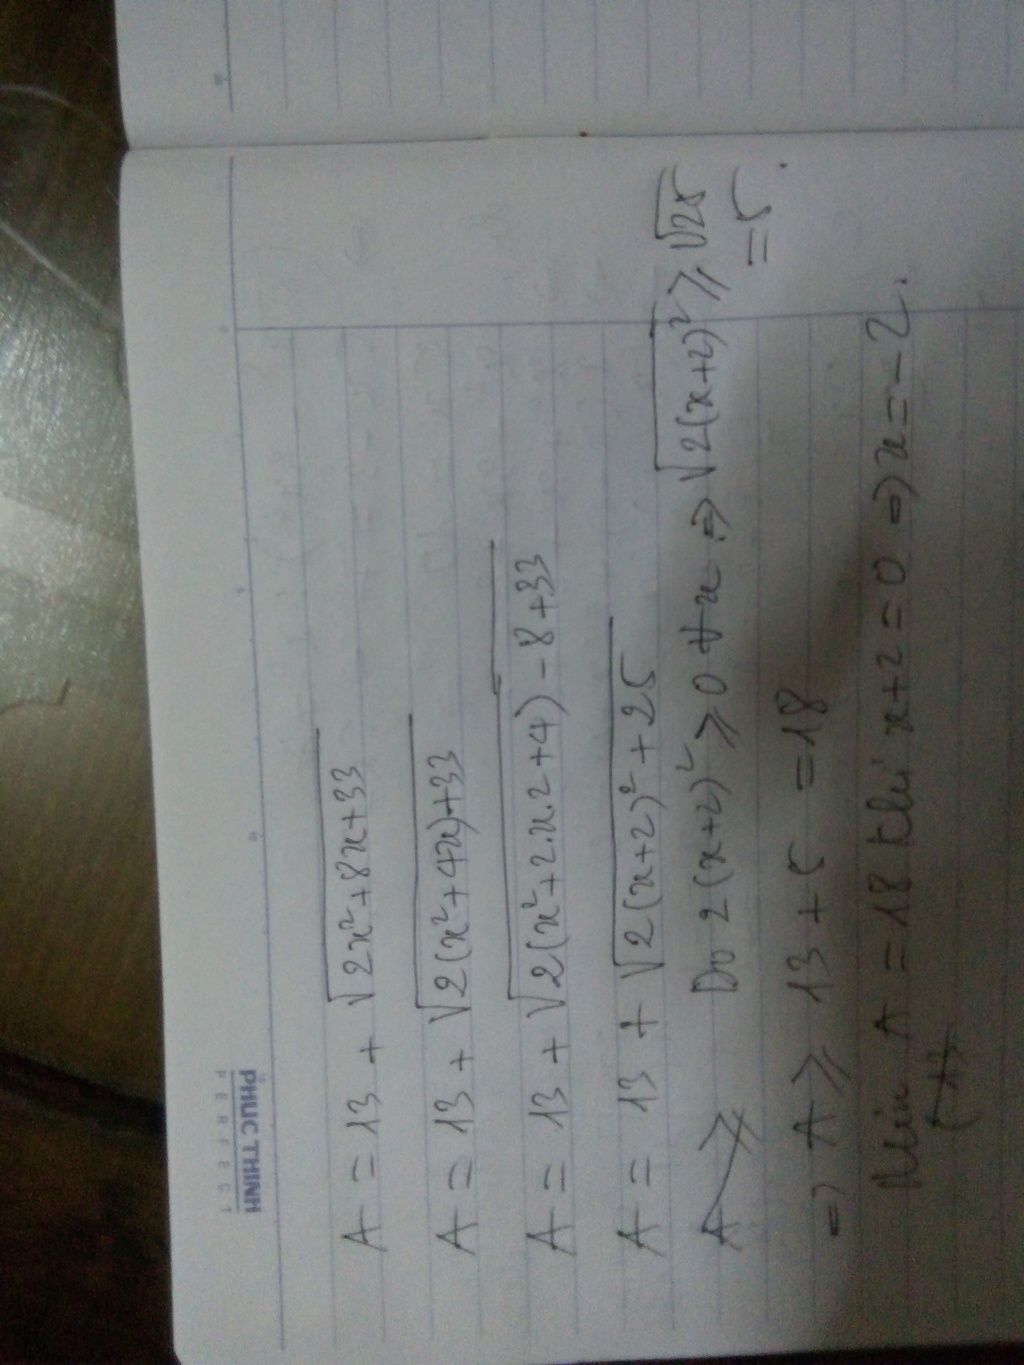 PHUCTHINH
PERFECT
A = 13 + √(2x²+8x+33)
A = 13 + √(2(x²+4x)+33)
A = 13 + √(2(x²+2.x.2+4)-8+33)
A = 13 + √(2(x+2)²+25)
A ≥ Do 2(x+2)² ≥ 0 ∀x ⇒ √(2(x+2)²) ≥ √25
= 5.
⇒ A ≥ 13 + 5 = 18
Min A = 18 khi x+2=0 ⇒ x=-2.